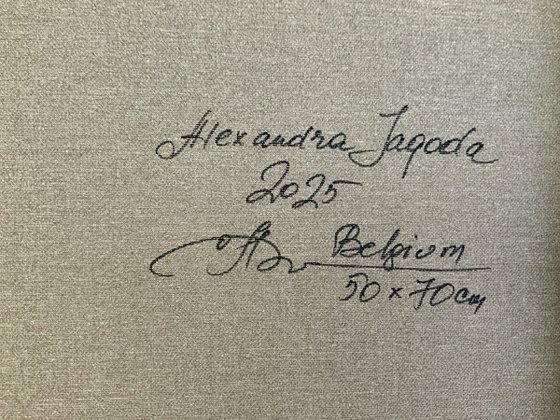 Alexandra Jagoda
2025
Belgium
50 x 70 cm